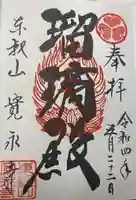 奉拝
令和四年
五月二十二日
瑠璃殿
東叡山 寛永寺